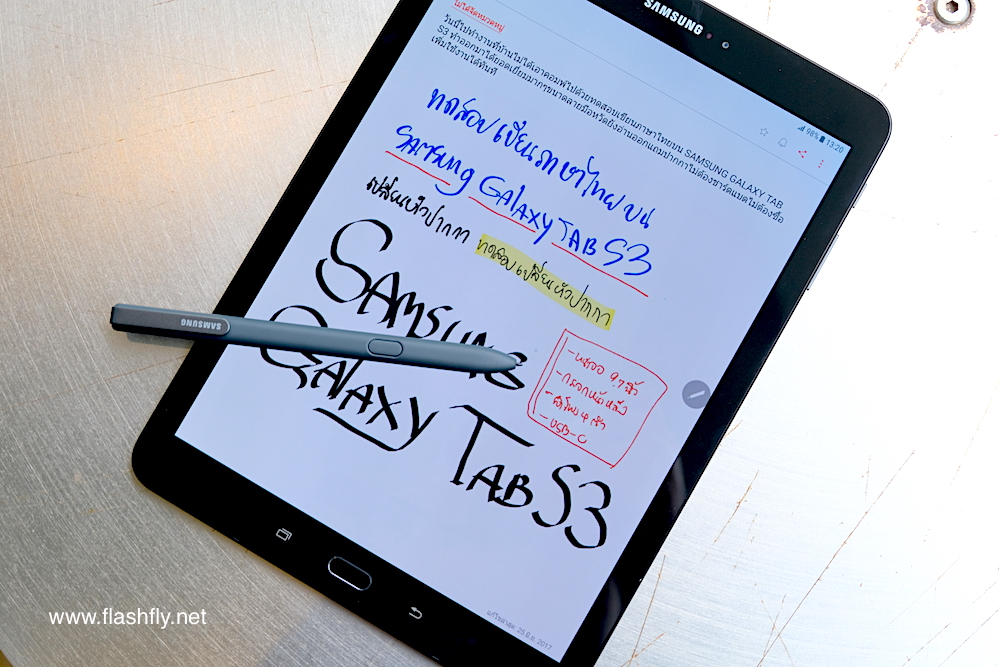 SAMSUNG
98% 13:20
ไม่ได้จัดหมวดหมู่
วันนี้ไปทำงานที่บ้านไม่ได้เอาคอมพ์ไปด้วยทดสอบเขียนภาษาไทยบน SAMSUNG GALAXY TAB
S3 ทำออกมาได้ยอดเยี่ยมมากๆขนาดลายมือหวัดยังอ่านออกแถมปากกาไม่ต้องชาร์ตแบตไม่ต้องซื้อ
เพิ่มใช้งานได้ทันที
ทดสอบเขียนภาษาไทยบน
SAMSUNG GALAXY TAB S3
เปลี่ยนหัวปากกา ทดสอบเปลี่ยนหัวปากกา
SAMSUNG
GALAXY TAB S3
- หน้าจอ 9.7 นิ้ว
- กระจกหน้าหลัง
- ลำโพง 4 ตัว
- USB-C
SAMSUNG
แก้ไขล่าสุด: 25 มิ.ย. 2017
www.flashfly.net